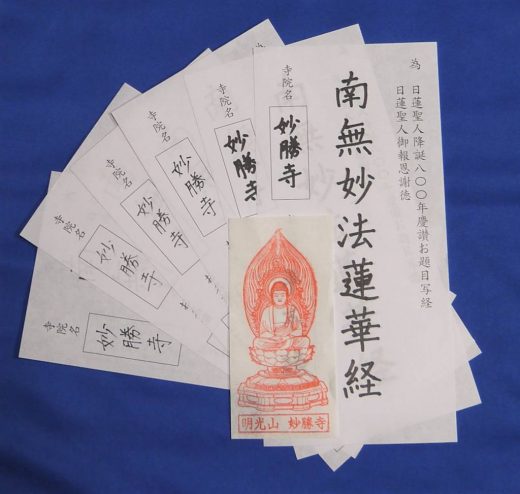 為
日蓮聖人降誕八〇〇年慶讃お題目写経
日蓮聖人御報恩謝徳
南無妙法蓮華経
寺院名
妙勝寺
寺院名
妙勝寺
寺院名
妙勝寺
寺院名
妙勝寺
寺院名
妙勝寺
寺院名
妙勝寺
明光山 妙勝寺